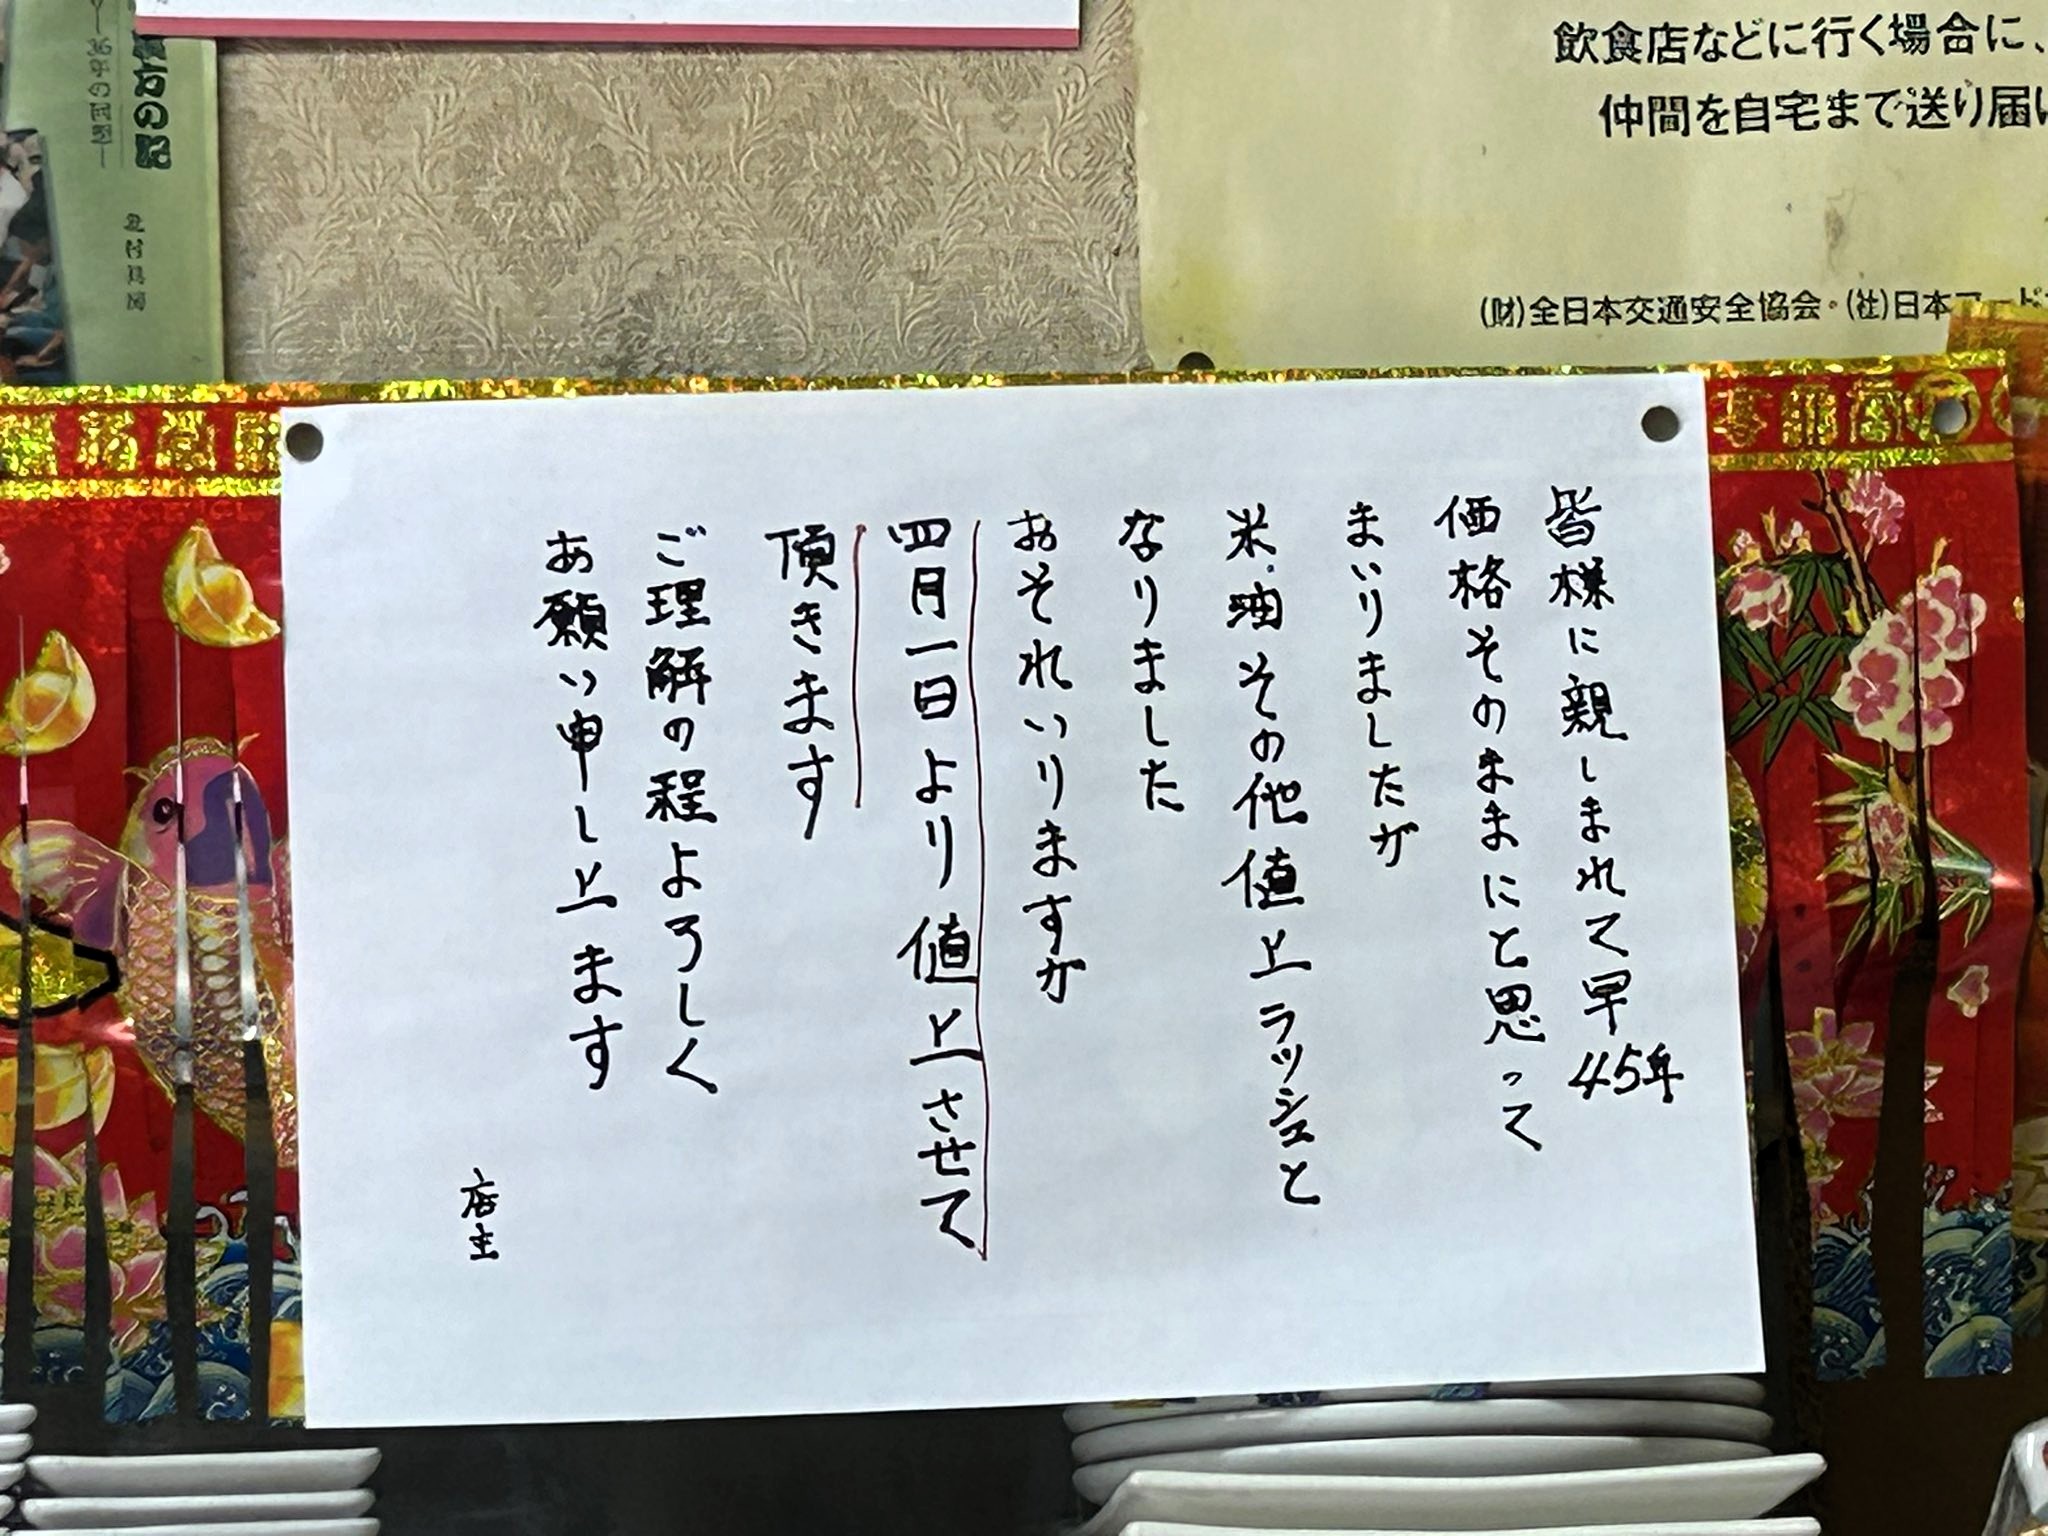 飲食店などに行く場合に、
仲間を自宅まで送り届け
(財)全日本交通安全協会・(社)日本フード
方の記
皆様に親しまれて早45年
価格そのままにと思って
まいりましたが
米.油その他値上ラッシュと
なりました
おそれいりますが
四月一日より値上させて
頂きます
ご理解の程よろしく
お願い申し上ます
店主